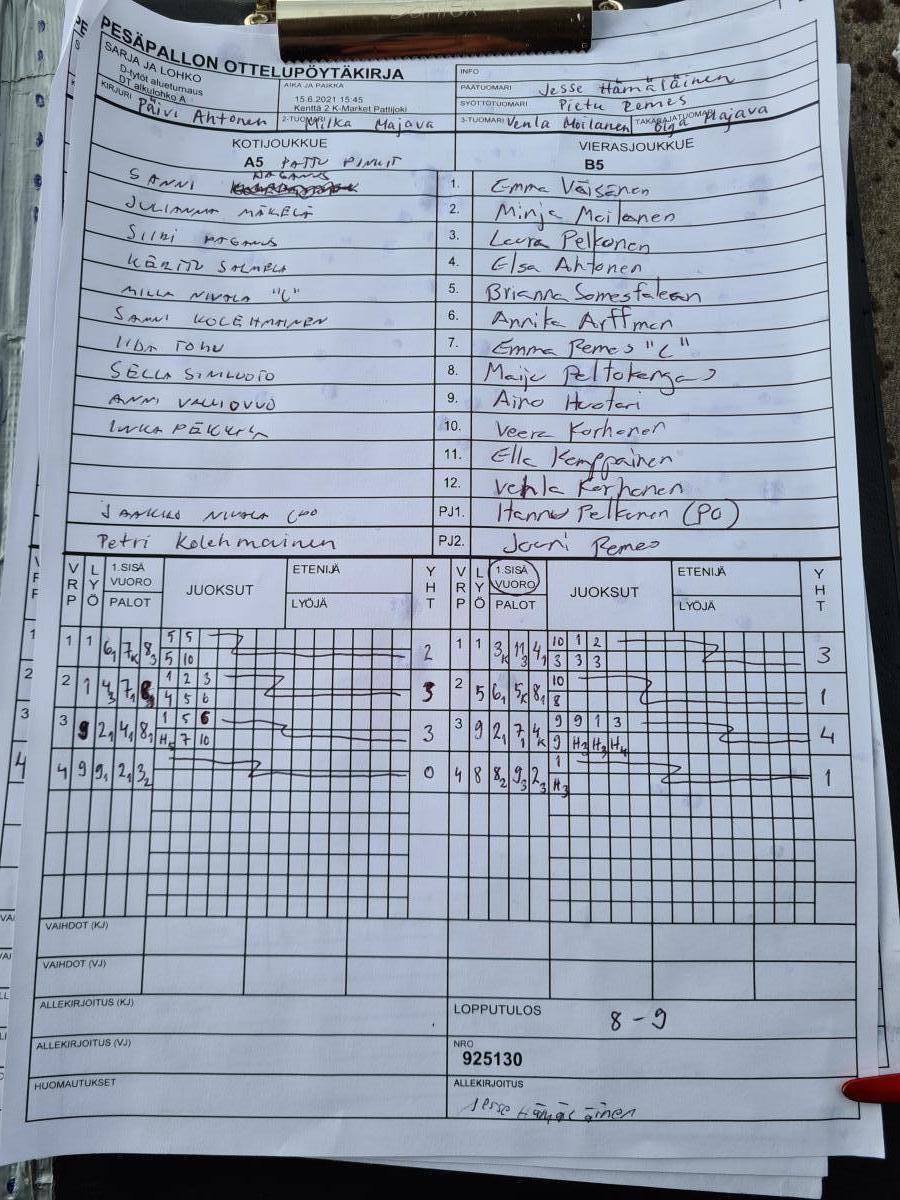 PESÄPALLON OTTELUPÖYTÄKIRJA
SARJA JA LOHKO
D-tytöt alueturnaus
DT alkulohko A
AIKA JA PAIKKA
15.6.2021 15:45
Kenttä 2 K-Market Pattijoki
INFO
PÄÄTUOMARI Jesse Hämäläinen
SYÖTTÖTUOMARI Pietu Remes
KIRJURI Päivi Ahtonen 2-TUOMARI Milka Majava 3-TUOMARI Venla Moilanen TAKARAJATUOMARI Olga Majava
KOTIJOUKKUE VIERASJOUKKUE
A5 PATTU PINKIT B5
SANNI HAGANS 1. Emma Väisänen
JULIANNA MÄKELÄ 2. Minja Moilanen
SIIRI HAGANS 3. Laura Pelkonen
KÄRTTU SALMELA 4. Elsa Ahtonen
MILLA NIVALA "C" 5. Brianna Somesfalean
SANNI KOLEHMAINEN 6. Annika Arffman
IIDA TOHU 7. Emma Remes "C"
SELLA SIMILUOTO 8. Maiju Peltokangas
ANNI VALLIOVUO 9. Aino Huotari
INKA PEKKALA 10. Veera Korhonen
11. Ella Kemppainen
12. Venla Korhonen
JAAKKO NIVALA PJ1. Hannu Pelkonen (PO)
Petri Kolehmainen PJ2. Jouni Remes
VRP LYÖ 1.SISÄ VUORO PALOT JUOKSUT ETENIJÄ LYÖJÄ YHT VRP LYÖ 1.SISÄ VUORO PALOT JUOKSUT ETENIJÄ LYÖJÄ YHT
1 1 6₁ 7ₖ 8₃ 5 5 2 1 1 3ₖ 11₃ 4₁ 10 1 2 3
5 10 3 3 3
2 1 4₃ 7₁ 1 2 3 3 2 5 6₁ 5ₖ 8₁ 10 1
4 5 6 8
3 9 2₁ 4₁ 8₁ 1 5 6 3 3 9 2₁ 7₁ 4ₖ 9 9 1 3 4
H₅ 7 10 9 H₂ H₃ H₄
4 9 9₁ 2₁ 3₂ 0 4 8 8₂ 9₃ 2₃ 1 1
H₃
VAIHDOT (KJ)
VAIHDOT (VJ)
ALLEKIRJOITUS (KJ) LOPPUTULOS 8-9
ALLEKIRJOITUS (VJ) NRO
925130
HUOMAUTUKSET ALLEKIRJOITUS
Jesse Hämäläinen